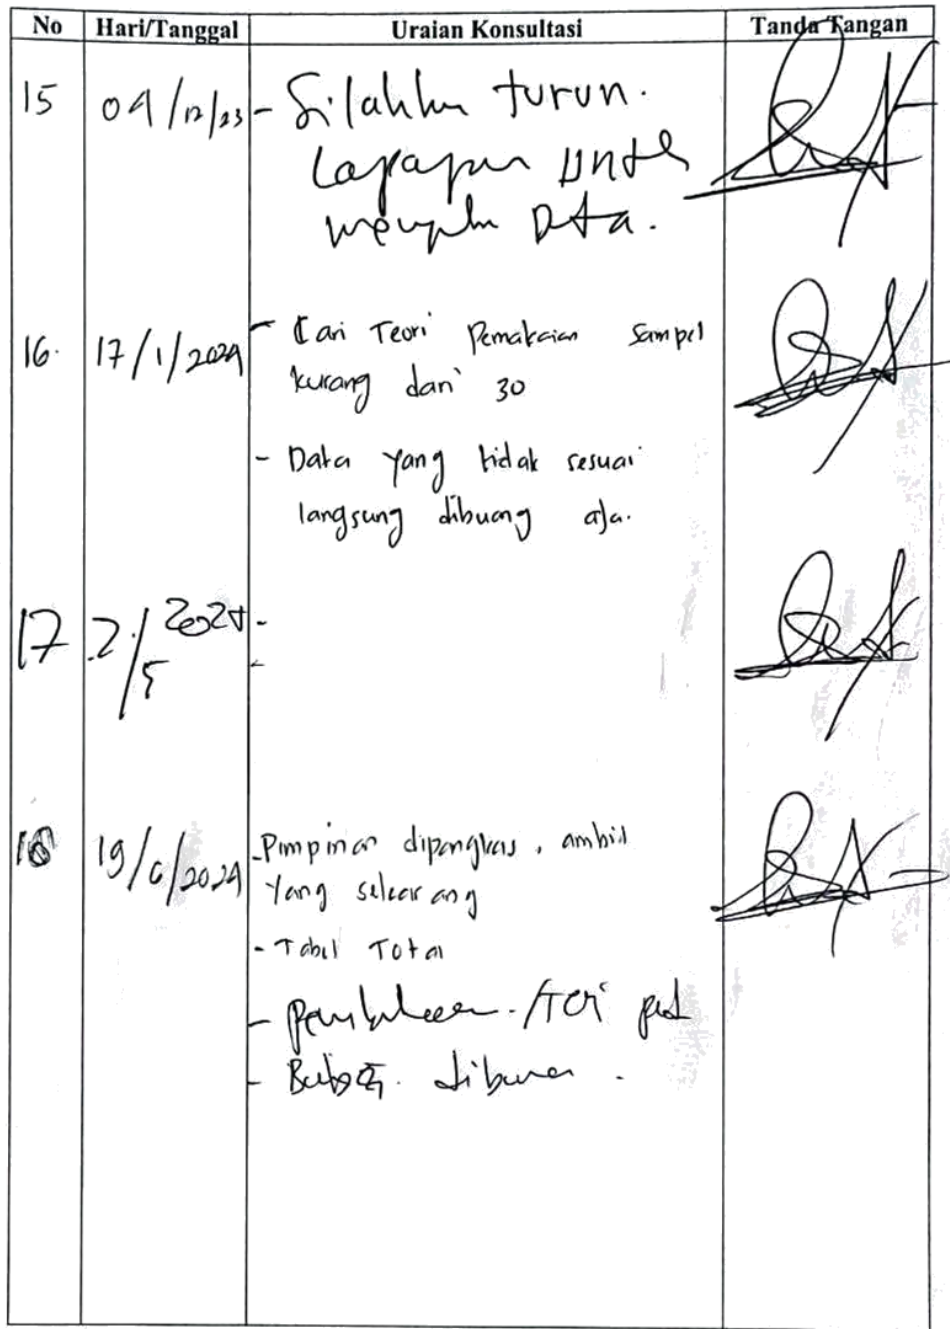 No Hari/Tanggal Uraian Konsultasi Tanda Tangan
15 04/12/23 - Silahkn turun.
Lapapn Untk
Data.
16. 17/1/2024 - Cari Teori Pemakaian Sampel
kurang dari 30
- Data yang tidak sesuai
langsung dibuang aja.
17 2/5 2024 -
-
18 19/6/2024 - Pimpinan dipangkas, ambil
yang sekarang
- Tabel Total
-
- dibuang.